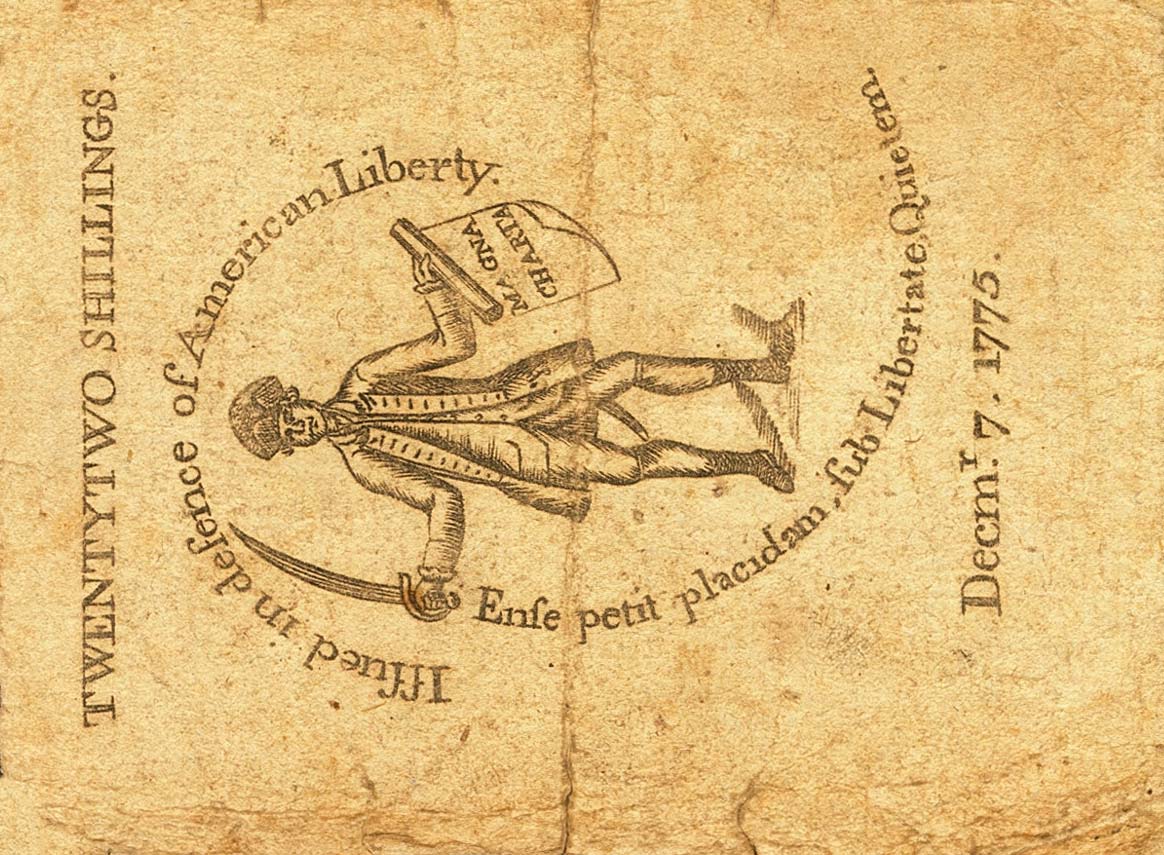 TWENTYTWO SHILLINGS.
Iſſued in defence of American Liberty.
MAGNA
CHARTA
Enſe petit placidam, ſub Libertate, Quietem.
Decmʳ. 7. 1775.